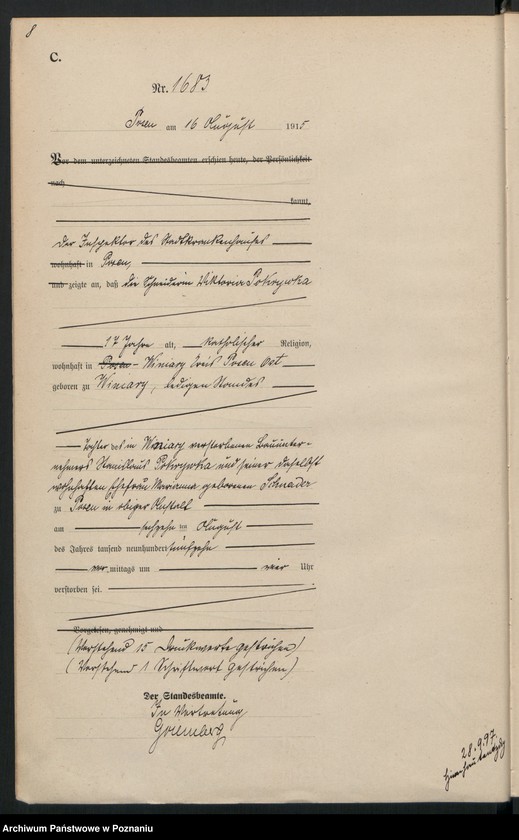 8
C.
Nr. 1683
Posen am 16 August 1915
Vor dem unterzeichneten Standesbeamten erschien heute, der Persönlichkeit
nach
kannt,
Der Inspektor des Stadtkrankenhauses
wohnhaft in Posen,
und zeigte an, daß die Schneiderin Wiktoria Pokrywka
17 Jahre alt, katholischer Religion,
wohnhaft in Posen - Winiary Kreis Posen Ost
geboren zu Winiary, ledigen Standes
Tochter des in Winiary verstorbenen Bauunter-
nehmers Stanislaus Pokrywka und seiner daselbst
wohnhaften Ehefrau Marianna geborenen Schneider
zu Posen in obiger Anstalt
am sechzehn ten August
des Jahres tausend neunhundert fünfzehn
vor mittags um vier Uhr
verstorben sei.
Vorgelesen, genehmigt und
(Vorstehend 15 Druckworte gestrichen)
(Vorstehend 1 Schriftwort gestrichen)
Der Standesbeamte.
In Vertretung
28.9.97
Archiwum Państwowe w Poznaniu